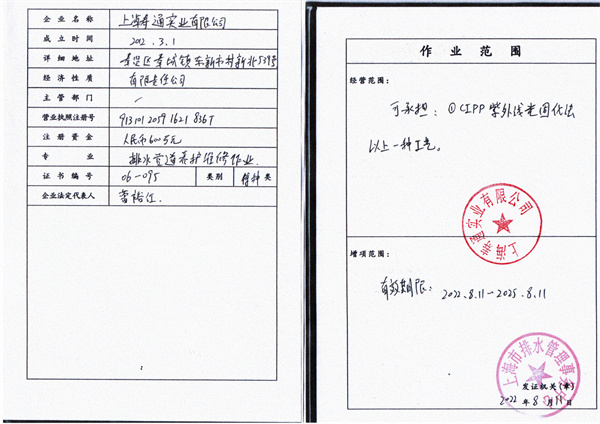 企业名称 上海寿通实业有限公司
成立时间 2012.3.1
详细地址 嘉定区嘉城镇东新市村新北539号
经济性质 有限责任公司
主管部门 /
营业执照注册号
注册资金 人民币600万元
专业 排水管道养护维修作业
证书编号 06-095 类别 特种类
企业法定代表人
作业范围
经营范围:
可承担: ①CIPP紫外线光固化法
以上一种工艺。
实业有限公司
上海
增项范围:
有效期限: 2022.8.11-2025.8.11
上海市排水管理事务中心
发证机关(章)
2022年8月11日
2